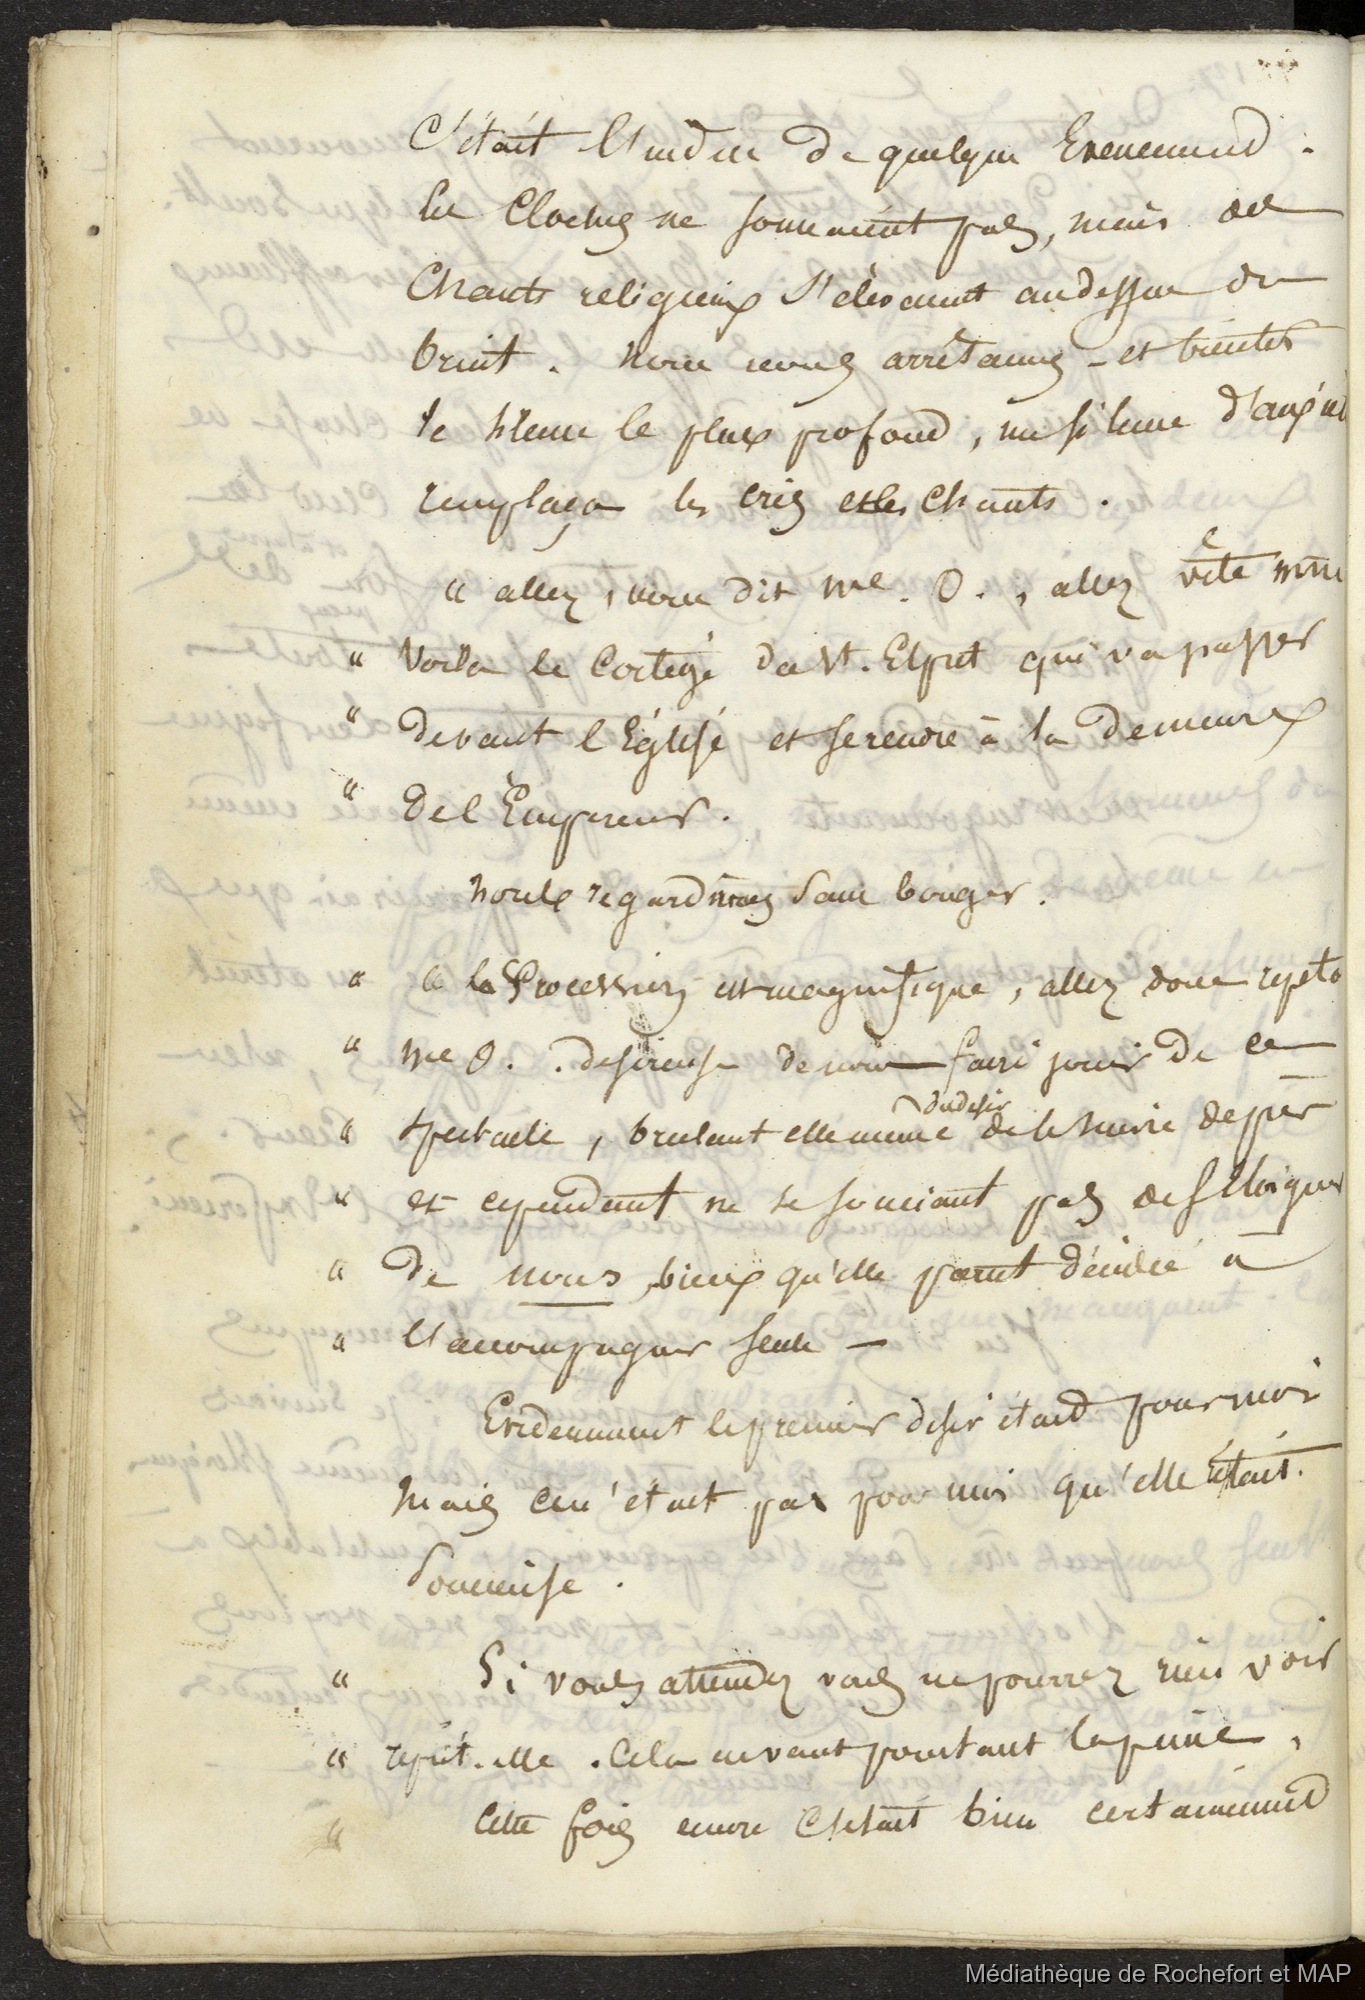 C'était l'indice de quelque Evenement.
les Cloches ne sonnaient pas, mais des
Chants religieux s'élevaient au dessus du
bruit. nous nous arrêtames - et bientôt
le silence le plus profond, un silence
remplaça les cris et les chants.
" allez, nous dit Me. O., allez vite
" Voila le Cortège du St. Esprit qui va passer
" devant l'Église et se rendre à la demeure
" de l'Empereur.
nous regardames sans bouger.
" " la Procession est magnifique, allez donc
" Me O.. desireuse de nous faire jouir de ce
" spectacle, brulant elle même du desir de le suivre de près
" et cependant ne se souciant pas de s'éloigner
" de nous, bien qu'elle parut décidée à
" l'accompagner seule -
Evidemment le premier desir était pour moi
mais ce n'était pas pour moi qu'elle était
Soucieuse.
" Si vous attendez vous ne pourrez rien voir
" reprit-elle. Cela en vaut pourtant la peine,
" Cette fois encore C'était bien certainement
Médiathèque de Rochefort et MAP